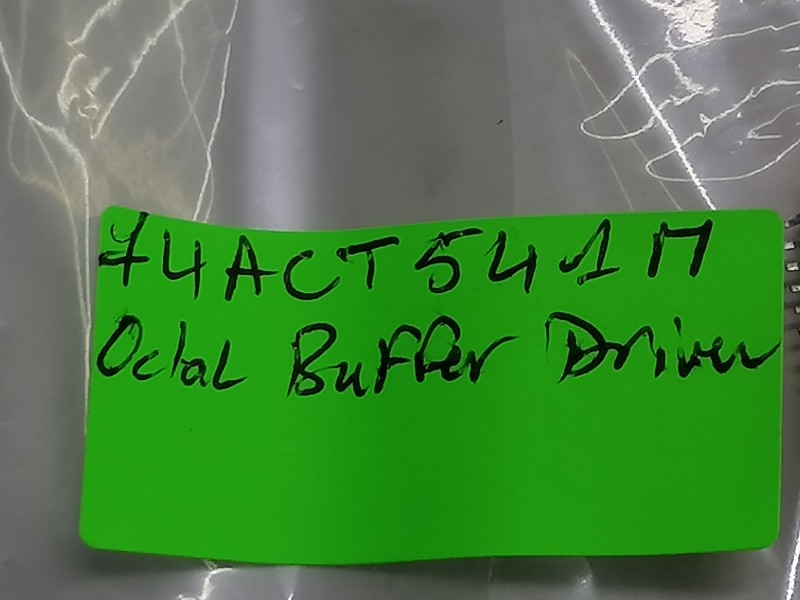 74ACT541M
Octal Buffer Driver